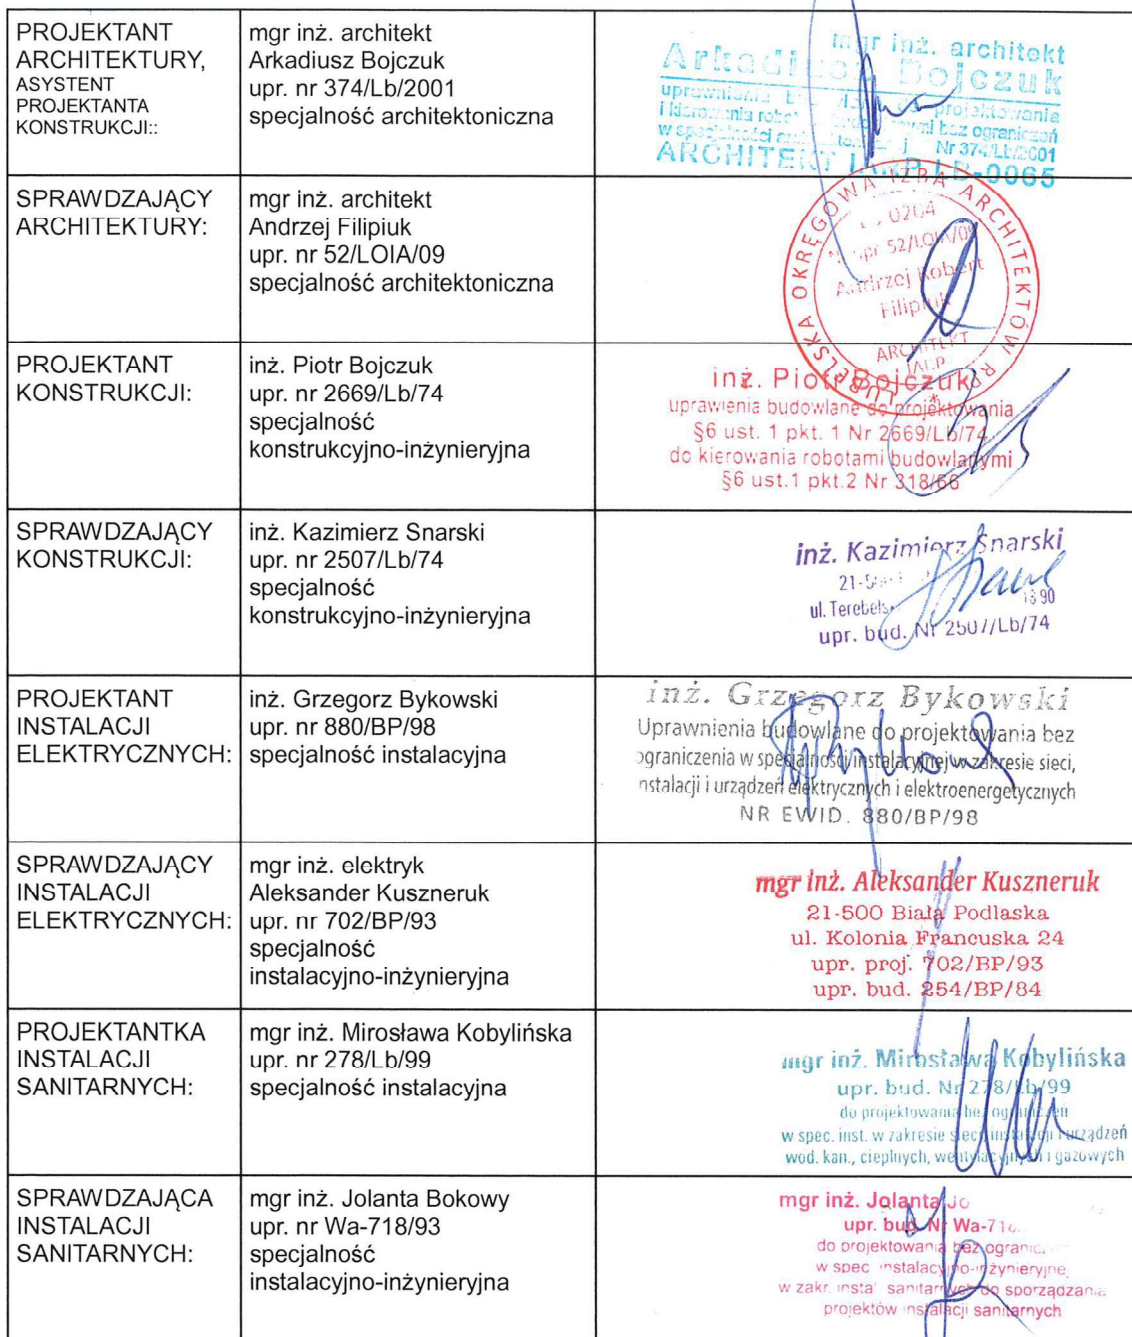 PROJEKTANT
ARCHITEKTURY,
ASYSTENT
PROJEKTANTA
KONSTRUKCJI::
mgr inż. architekt
Arkadiusz Bojczuk
upr. nr 374/Lb/2001
specjalność architektoniczna
mgr inż. architekt
Arkadiusz Bojczuk
projektowania
bez ograniczeń
Nr 374/Lb/2001
ARCHITEKT LB-0065
SPRAWDZAJĄCY
ARCHITEKTURY:
mgr inż. architekt
Andrzej Filipiuk
upr. nr 52/LOIA/09
specjalność architektoniczna
LUBELSKA OKRĘGOWA IZBA ARCHITEKTÓW RP
0204
upr 52/LOIA/09
Andrzej Robert
Filipiuk
ARCHITEKT
PROJEKTANT
KONSTRUKCJI:
inż. Piotr Bojczuk
upr. nr 2669/Lb/74
specjalność
konstrukcyjno-inżynieryjna
inż. Piotr Bojczuk
uprawienia budowlane do projektowania
§6 ust. 1 pkt. 1 Nr 2669/Lb/74
do kierowania robotami budowlanymi
§6 ust.1 pkt.2 Nr 318/66
SPRAWDZAJĄCY
KONSTRUKCJI:
inż. Kazimierz Snarski
upr. nr 2507/Lb/74
specjalność
konstrukcyjno-inżynieryjna
inż. Kazimierz Snarski
ul.
upr. bud. Nr 2507/Lb/74
PROJEKTANT
INSTALACJI
ELEKTRYCZNYCH:
inż. Grzegorz Bykowski
upr. nr 880/BP/98
specjalność instalacyjna
inż. Grzegorz Bykowski
Uprawnienia budowlane do projektowania bez
ograniczenia w specjalności instalacyjnej w zakresie sieci,
nstalacji i urządzeń elektrycznych i elektroenergetycznych
NR EWID. 880/BP/98
SPRAWDZAJĄCY
INSTALACJI
ELEKTRYCZNYCH:
mgr inż. elektryk
Aleksander Kuszneruk
upr. nr 702/BP/93
specjalność
instalacyjno-inżynieryjna
mgr inż. Aleksander Kuszneruk
21-500 Biała Podlaska
ul. Kolonia Francuska 24
upr. proj. 702/BP/93
upr. bud. 254/BP/84
PROJEKTANTKA
INSTALACJI
SANITARNYCH:
mgr inż. Mirosława Kobylińska
upr. nr 278/Lb/99
specjalność instalacyjna
mgr inż. Mirosława Kobylińska
upr. bud. Nr 278/Lb/99
do projektowania bez ograniczeń
w spec. inst. w zakresie sieci instalacji i urządzeń
wod. kan., cieplnych, wentylacyjnych i gazowych
SPRAWDZAJĄCA
INSTALACJI
SANITARNYCH:
mgr inż. Jolanta Bokowy
upr. nr Wa-718/93
specjalność
instalacyjno-inżynieryjna
mgr inż. Jolanta
upr. bud. Nr
do projektowania bez
w spec instalacyjno-inżynieryjnej
w zakr. sanitarnych do sporządzania
projektów instalacji sanitarnych